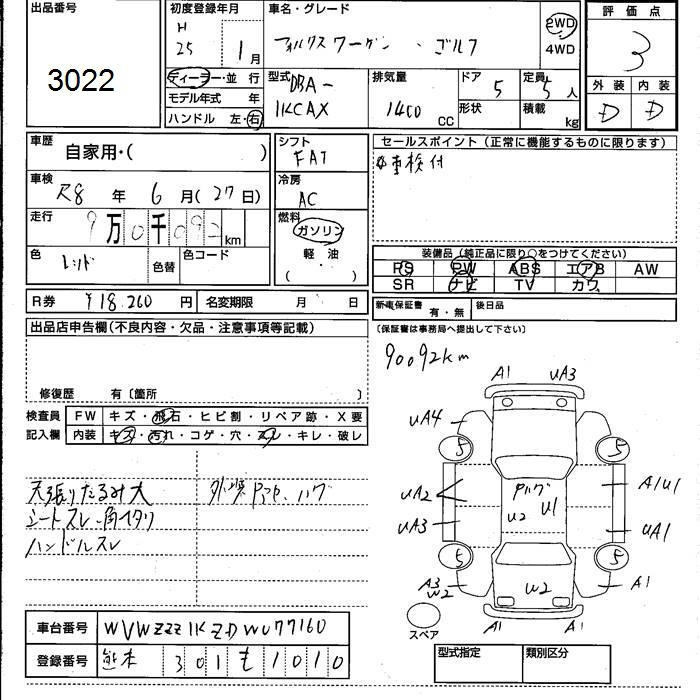 出品番号
3022
初度登録年月
H
25 1月
ディーラー・並 行
モデル年式 年
ハンドル 左・右
車名・グレード
フォルクスワーゲン ・ ゴルフ
2WD
4WD
型式
DBA-
1KCAX
排気量
1400
CC
ドア
5
形状
定員
5人
積載
kg
評 価 点
3
外 装 内 装
D D
車歴
自家用・( )
車検
R8 年 6 月(27日)
走行
9万0千092km
色
レッド
色替
色コード
シフト
FAT
冷房
AC
燃料
ガソリン
軽 ・ 油
( )
セールスポイント(正常に機能するものに限ります)
車検付
装備品(純正品に限り○をつけてください)
PS PW ABS エアB AW
SR ナビ TV カワ
R券 ¥18,260 円 名変期限 月 日
新車保証書
有・無
後日品
(保証書は事務局へ提出して下さい)
出品店申告欄(不良内容・欠品・注意事項等記載)
修復歴 有〔箇所 〕
検査員
記入欄
FW キズ・飛石・ヒビ割・リペア跡・X要
内装 キズ・汚れ・コゲ・穴・スレ・キレ・破レ
天張りたるみ大
シートスレ
ハンドルスレ
90092km
A1 UA3
UA4
5 5
UA2
UA3
U2 U1
A1U1
UA1
5 5
A3
W2
W2
A1
A1 A1
スペア
車台番号 WVWZZZ1KZDW077160
登録番号 熊本 301 も 1010
型式指定 類別区分